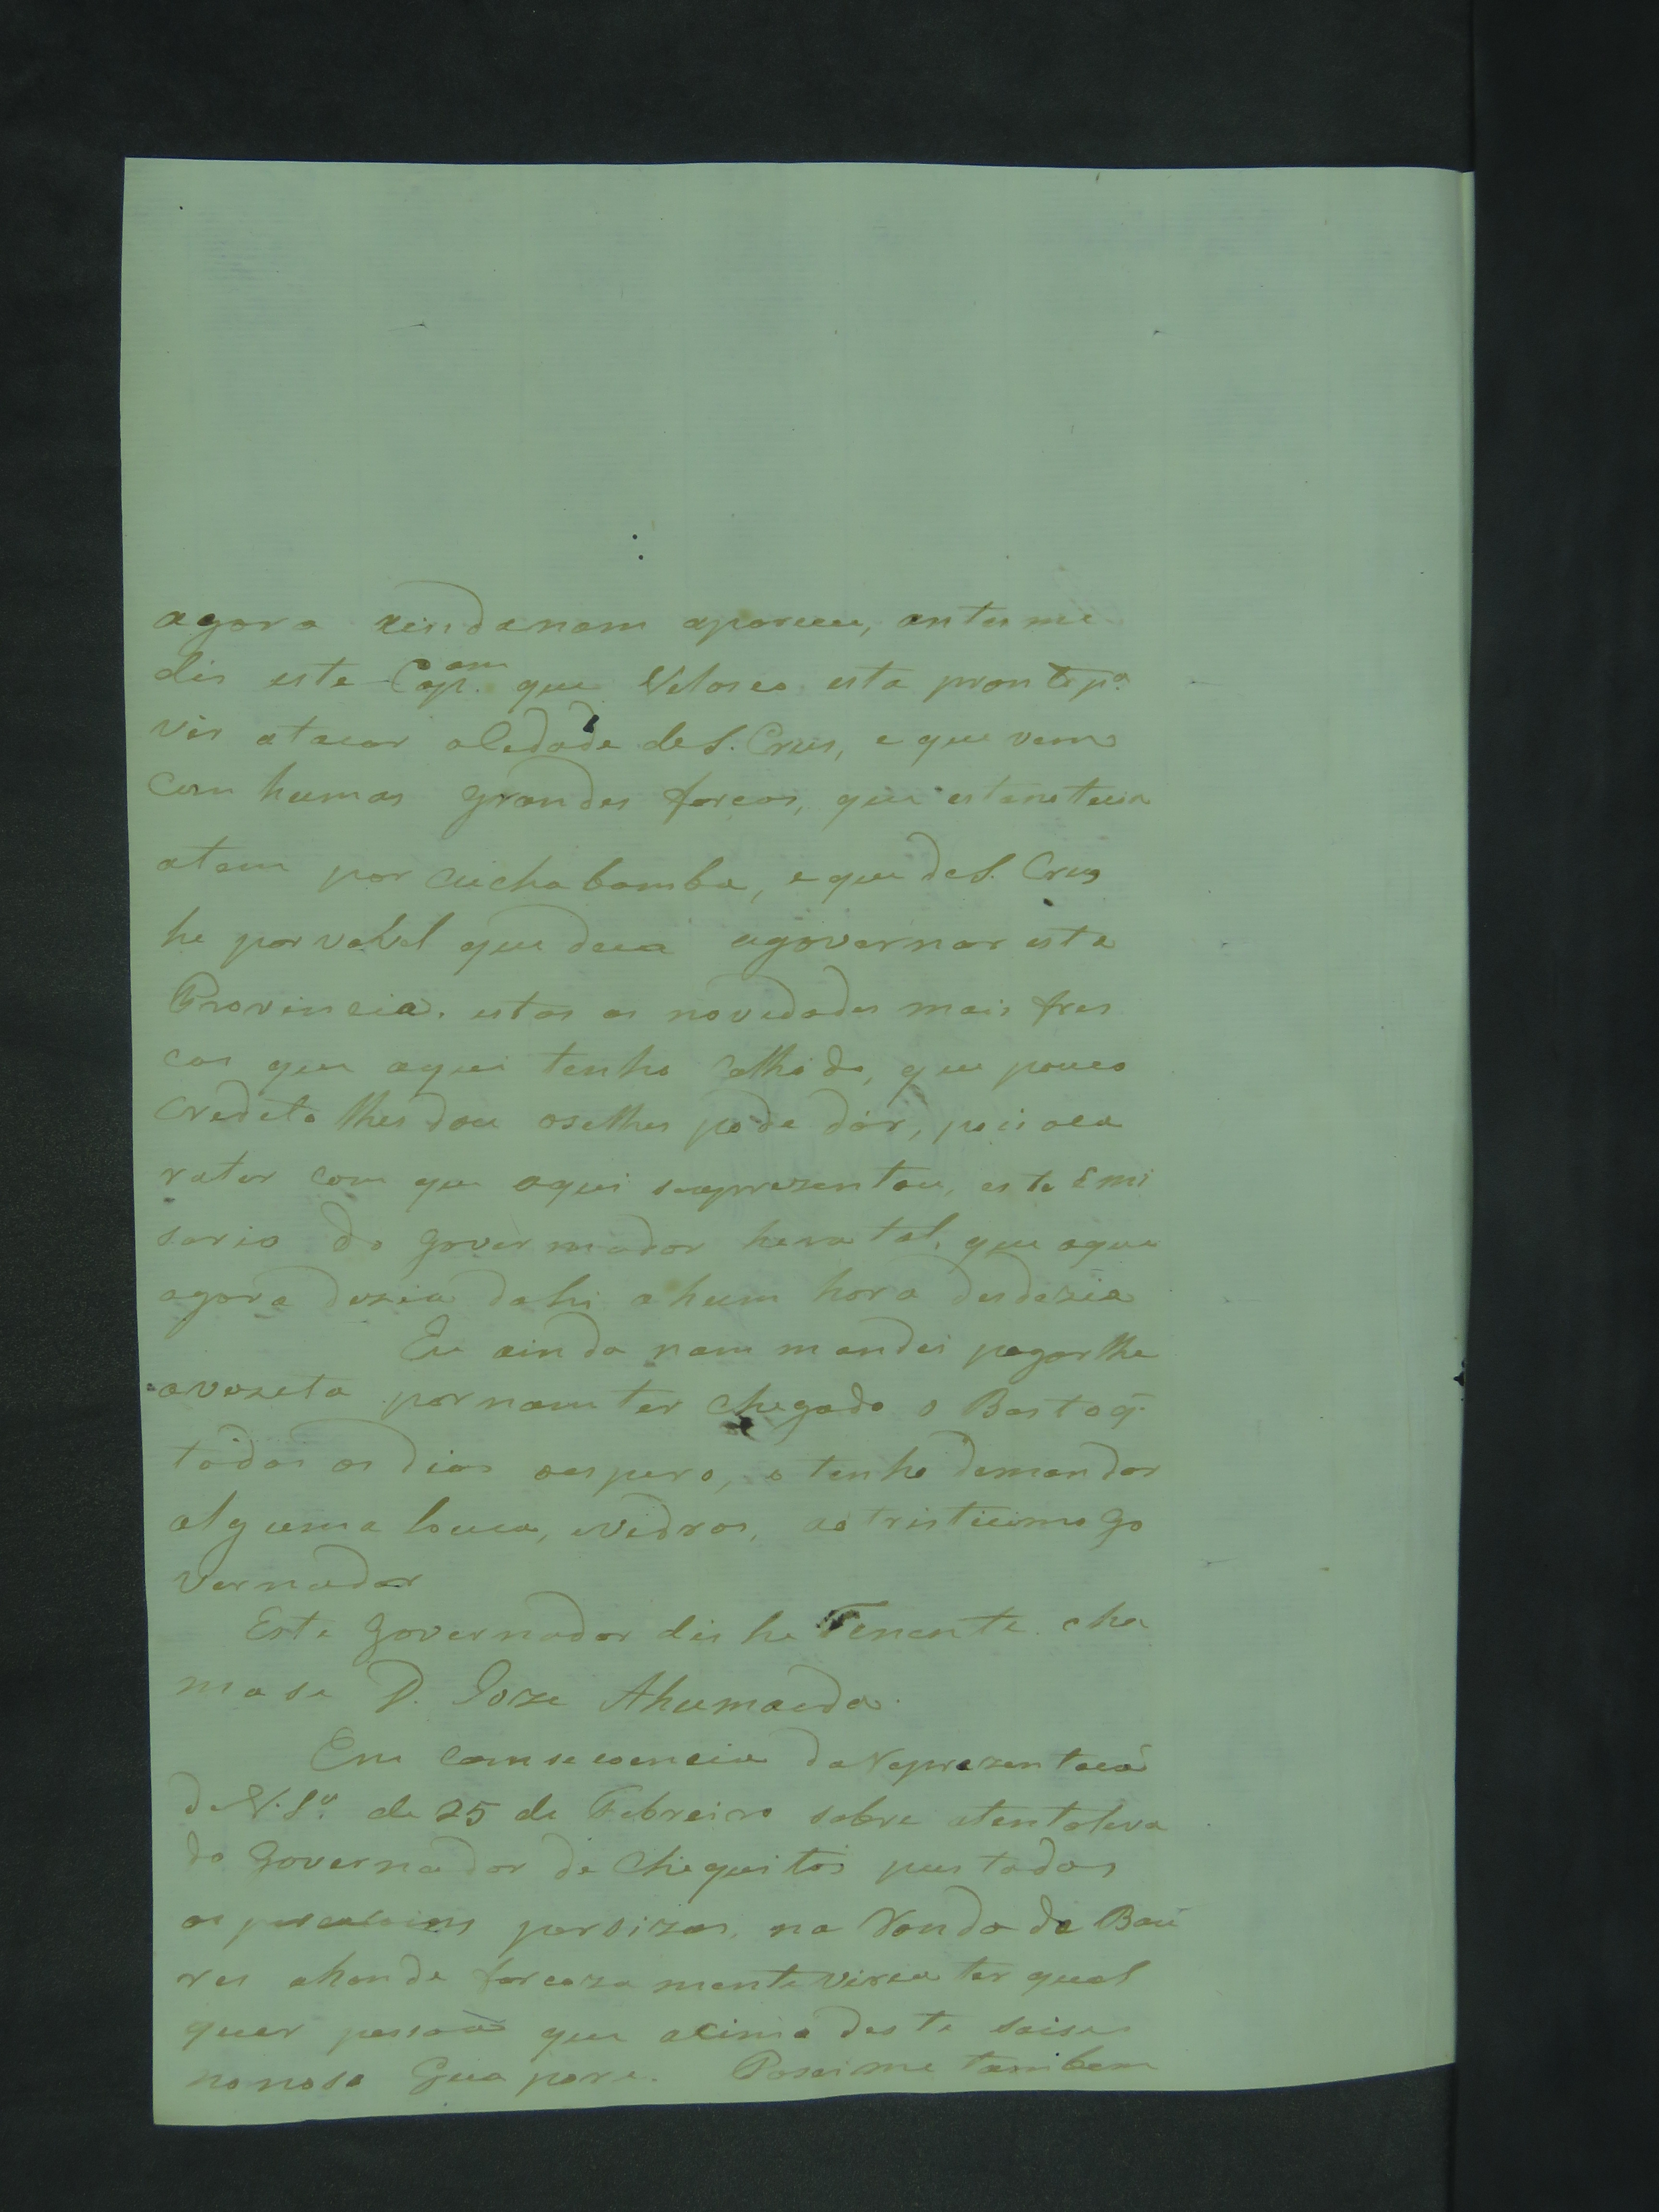 agora aindanam apareceu, antes me
dis este Cap.am que Velasco esta pronto p.a
vir atacar aCidade de S. Crus, e que vem
Com humas grandes forcas, que
atem por Cuchabamba, e que de S. Crus
he porvavel que deca agovernar esta
Provincia. estas as novedades mais fres
cas que aqui tenho Colhido, que pouco
Credeto lhes dou ose lhes pode dár, pois oca
rater com que aqui seaprezentou, este Emi
sario do governador hera tal, que aque
agora dezia dahi ahum hora desdezia
Eu ainda nam mandei pagar lhe
avezeta pornam ter Chegado o Bastos q.
todos os dias oespero, e tenho demandar
alguma louca, evidros, ao tristicimo Go
vernador
Este Governador dis he Tenente cha
mase D. Joze Ahumada
Em Comsecoencia daReprezentacaõ
de V. S.a de 25 de Febreiro sobre atentateva
do Governador de Chequitos pus todas
as percizas, na Ronda de Bau
res ahonde forcozamente viria ter qual
quer pessoa que acima deste saise
nonoso Guapore. Paseime tambem